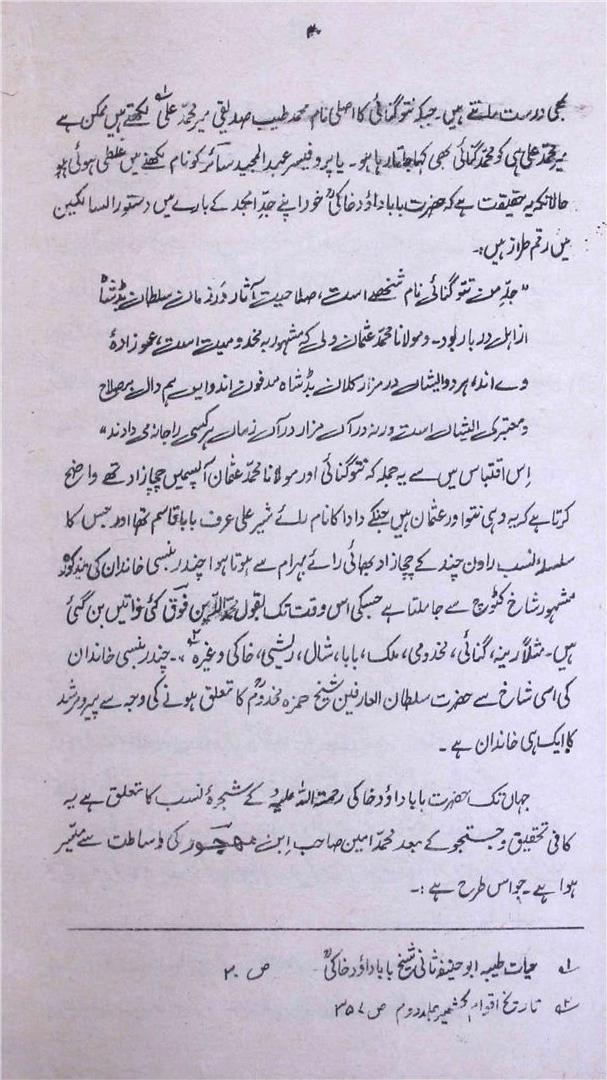 ۴
بھی درست ملتے ہیں۔ جبکہ نتو گنائی کا اصلی نام محمد طیب صدیقی میر محمد علی لکھتے ہیں ممکن ہے
میر محمد علی ہی کو محمد گنائی بھی کہا جاتا رہا ہو۔ یا پروفیسر عبدالمجید سائر کو نام لکھنے میں غلطی ہوئی ہو
حالانکہ یہ حقیقت ہے کہ حضرت بابا داؤد خاکیؒ خود اپنے جدِّ امجد کے بارے میں دستور السالکین
میں رقم طراز ہیں:۔
"جدِّ من نتو گنائی نام شخصے است، صلاحیت آثار در زمان سلطان بڈشاہ
از اہل دربار بود۔ و مولانا محمد عثمان ولی کہ مشہور بہ مخدومیت است، عمو زادۂ
وے اند، ہر دو ایشان در مزار کلان بڈشاہ مدفون اند و ایں ہم دال بر صلاح
و معتبری ایشان است ورنہ در آں مزار در آں زمان ہر کسی را جا نہ می دادند"
اِس اقتباس میں سے یہ جملہ کہ نتو گنائی اور مولانا محمد عثمان آپسمیں چچازاد تھے واضح
کرتا ہے کہ یہ وہی نتو اور عثمان ہیں جنکے دادا کا نام رائے شیر علی عرف بابا قاسم تھا اور جس کا
سلسلۂ نسب راون چند کے چچازاد بھائی رائے بہرام سے ہوتا ہوا چندر بنسی خاندان کی مذکورہ
مشہور شاخ کٹوچ سے جا ملتا ہے جسکی اس وقت تک بقول محمد الدین فوق کئی ذاتیں بن گئی
ہیں۔ مثلاً رینہ، گنائی، مخدومی، ملک، بابا، شال، ریشی، خاکی وغیرہ ۲؎۔ چندر بنسی خاندان
کی اسی شاخ سے حضرت سلطان العارفین شیخ حمزہ مخدومؒ کا تعلق ہونے کی وجہ سے پیر و مرشد
کا ایک ہی خاندان ہے۔
جہاں تک حضرت بابا داؤد خاکی رحمتہ اللہ علیہ کے شجرۂ نسب کا تعلق ہے یہ
کافی تحقیق و جستجو کے بعد محمد امین صاحب اِبنِ مہجور کی وساطت سے میسّر
ہوا ہے۔ جو اس طرح ہے:۔
۱؎ حیات طیبہ ابو حنیفہ ثانی شیخ بابا داؤد خاکیؒ ص ۲۰
۲؎ تاریخ اقوام کشمیر جلد دوم ص ۳۵۷